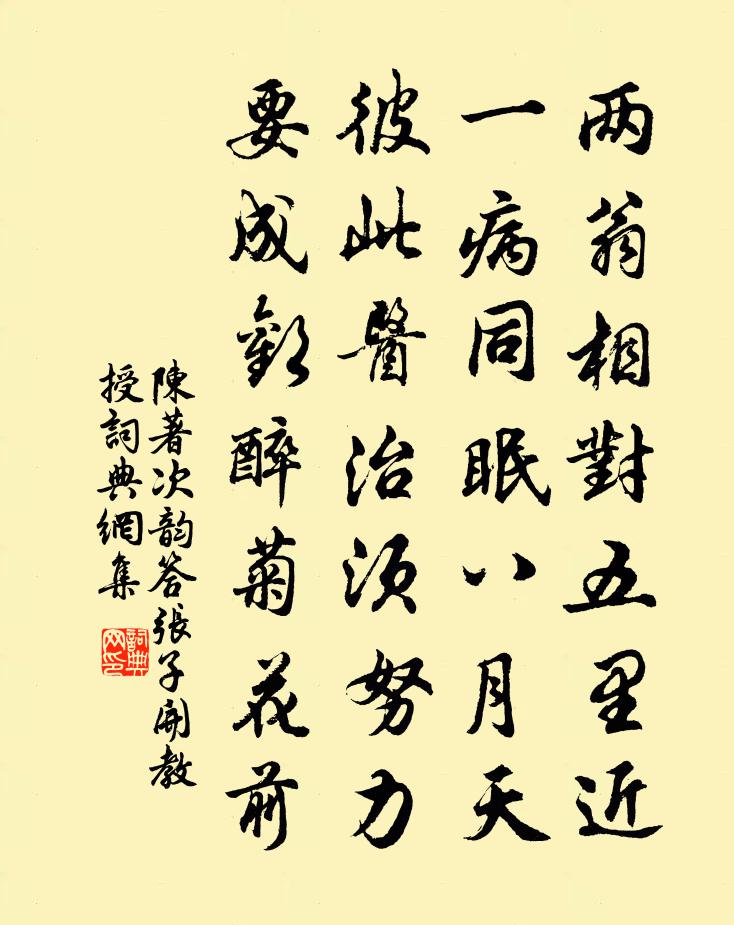 两翁相對五里近
一病同眠八月天
彼此醫治須努力
要成歡醉菊花前
陳著次韵答張子開教
授詞典網集
詞典网印